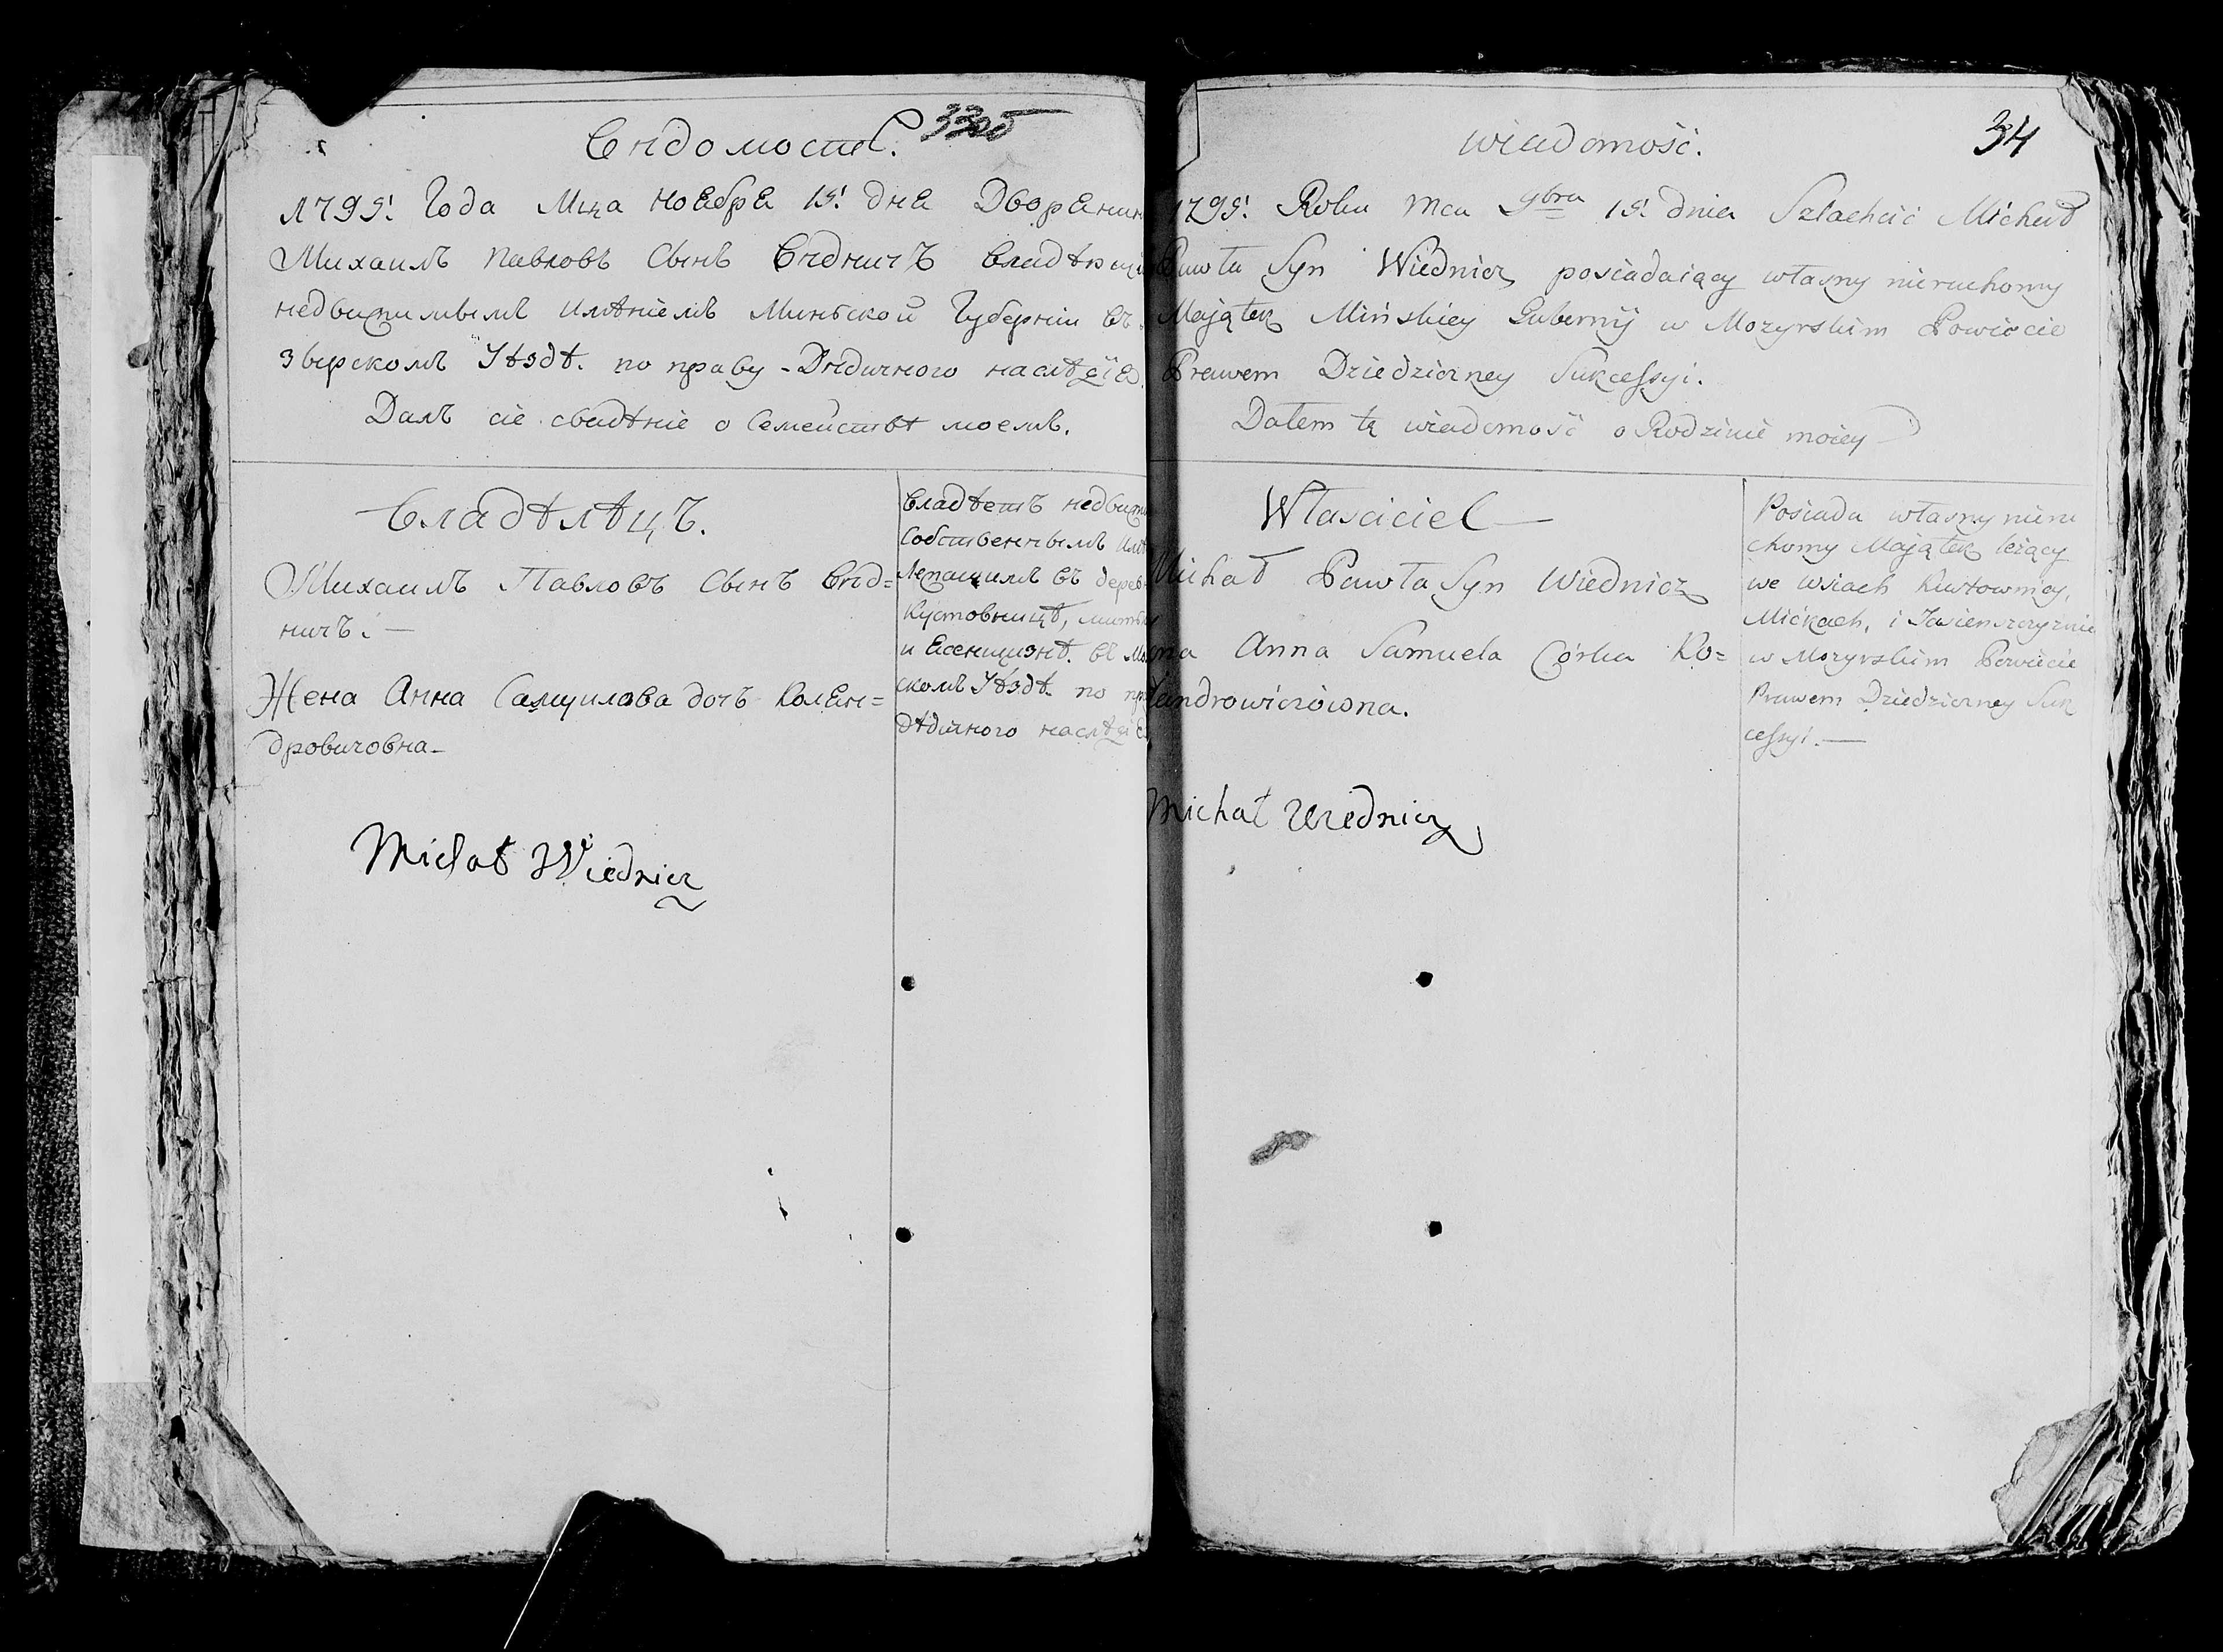 33об
Вѣдомость.
1795: Года Мца Ноебре 15: дне Дворенин
Михаилъ Павловъ Сынъ Вѣдничъ владѣющи
недвижимымъ имѣніемъ Минской Губерніи въ
зырскомъ Уѣздѣ. по праву Дѣдичного наслѣдіе.
Далъ сіе свѣдѣніе о Семействѣ моемъ.
Владѣлѣцъ.
Михаилъ Павловъ Сынъ Вѣд=
ничъ. —
Жена Анна Самуилова дочь Колен=
дровичовна
Владѣетъ недвижи
Собственнымъ имѣ
Лежащимъ въ дерев
Кустовницѣ,
и Есенщизнѣ. въ Мо
скомъ Уѣздѣ. по пр
дѣдичного наслѣдіе
Michał Wiednicz
34
wiadomość.
1795: Roku Mca 9bra 15: dnia Szlachcic Michał
Pawła Syn Wiednicz posiadaiący własny nieruchomy
Majątek Mińskiey Gubernij w Mozyrskim Powiecie
Prawem Dziedziczney Sukcessyi.
Dałem tą wiadomość o Rodzinie moiey
Właściciel —
Michał Pawła Syn Wiednicz
na Anna Samuela Córka Ko=
lendrowiczówna.
Posiada własny nieru
chomy Majątek leżący
we wsiach Kustownicy,
Mićkach, i Jasienszczyznie
w Mozyrskim Powiecie
Prawem Dziedziczney Suk
cessyi. —
Michał Wiednicz